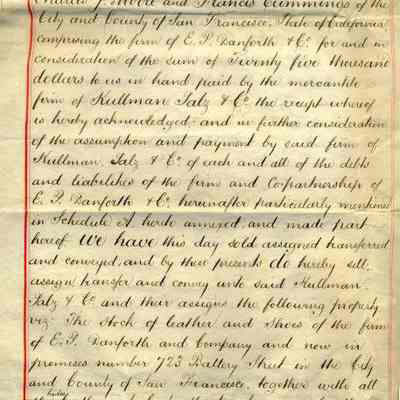 J. Moore and Francis Cummings of the
City and County of San Francisco, State of California
comprising the firm of E. P. Danforth & Co. for and in
consideration of the sum of Twenty five thousand
dollars to us in hand paid by the mercantile
firm of Kullman Salz & Co. the receipt whereof
is hereby acknowledged and in further consideration
of the assumption and payment by said firm of
Kullman, Salz & Co. of each and all of the debts
and liabilities of the firm and Copartnership of
E. P. Danforth & Co. hereinafter particularly mentioned
in Schedule A hereto annexed, and made part
hereof We have this day sold assigned transferred
and conveyed, and by these presents do hereby sell,
assign transfer and convey unto said Kullman,
Salz & Co and their assigns the following property
viz: The Stock of leather and Shoes of the firm
of E. P. Danforth and Company and now in
premises number 723 Battery Street in the City
and County of San Francisco, together with all